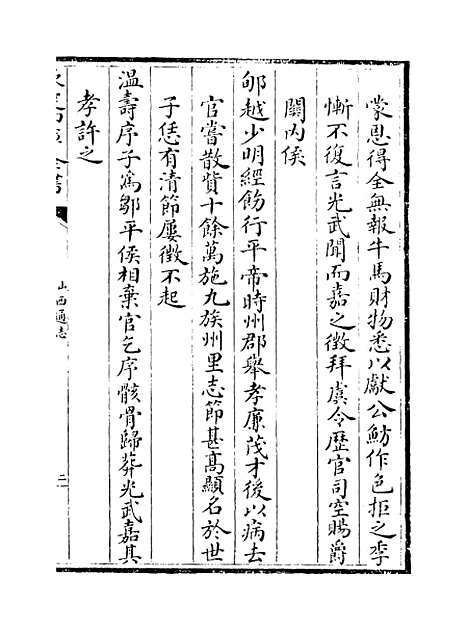 蒙恩得全無報牛馬財物悉以獻公魴作色拒之季
慚不復言光武聞而嘉之徴拜虞令歴官司空賜爵
關内侯
郇越少明經飭行平帝時州郡舉孝廉茂才後以病去
官嘗散貲十餘萬施九族州里志節甚髙顯名於世
子恁有清節屢徴不起
温壽序子為鄒平侯相棄官乞序骸骨歸葬光武嘉其
孝許之
山西通志